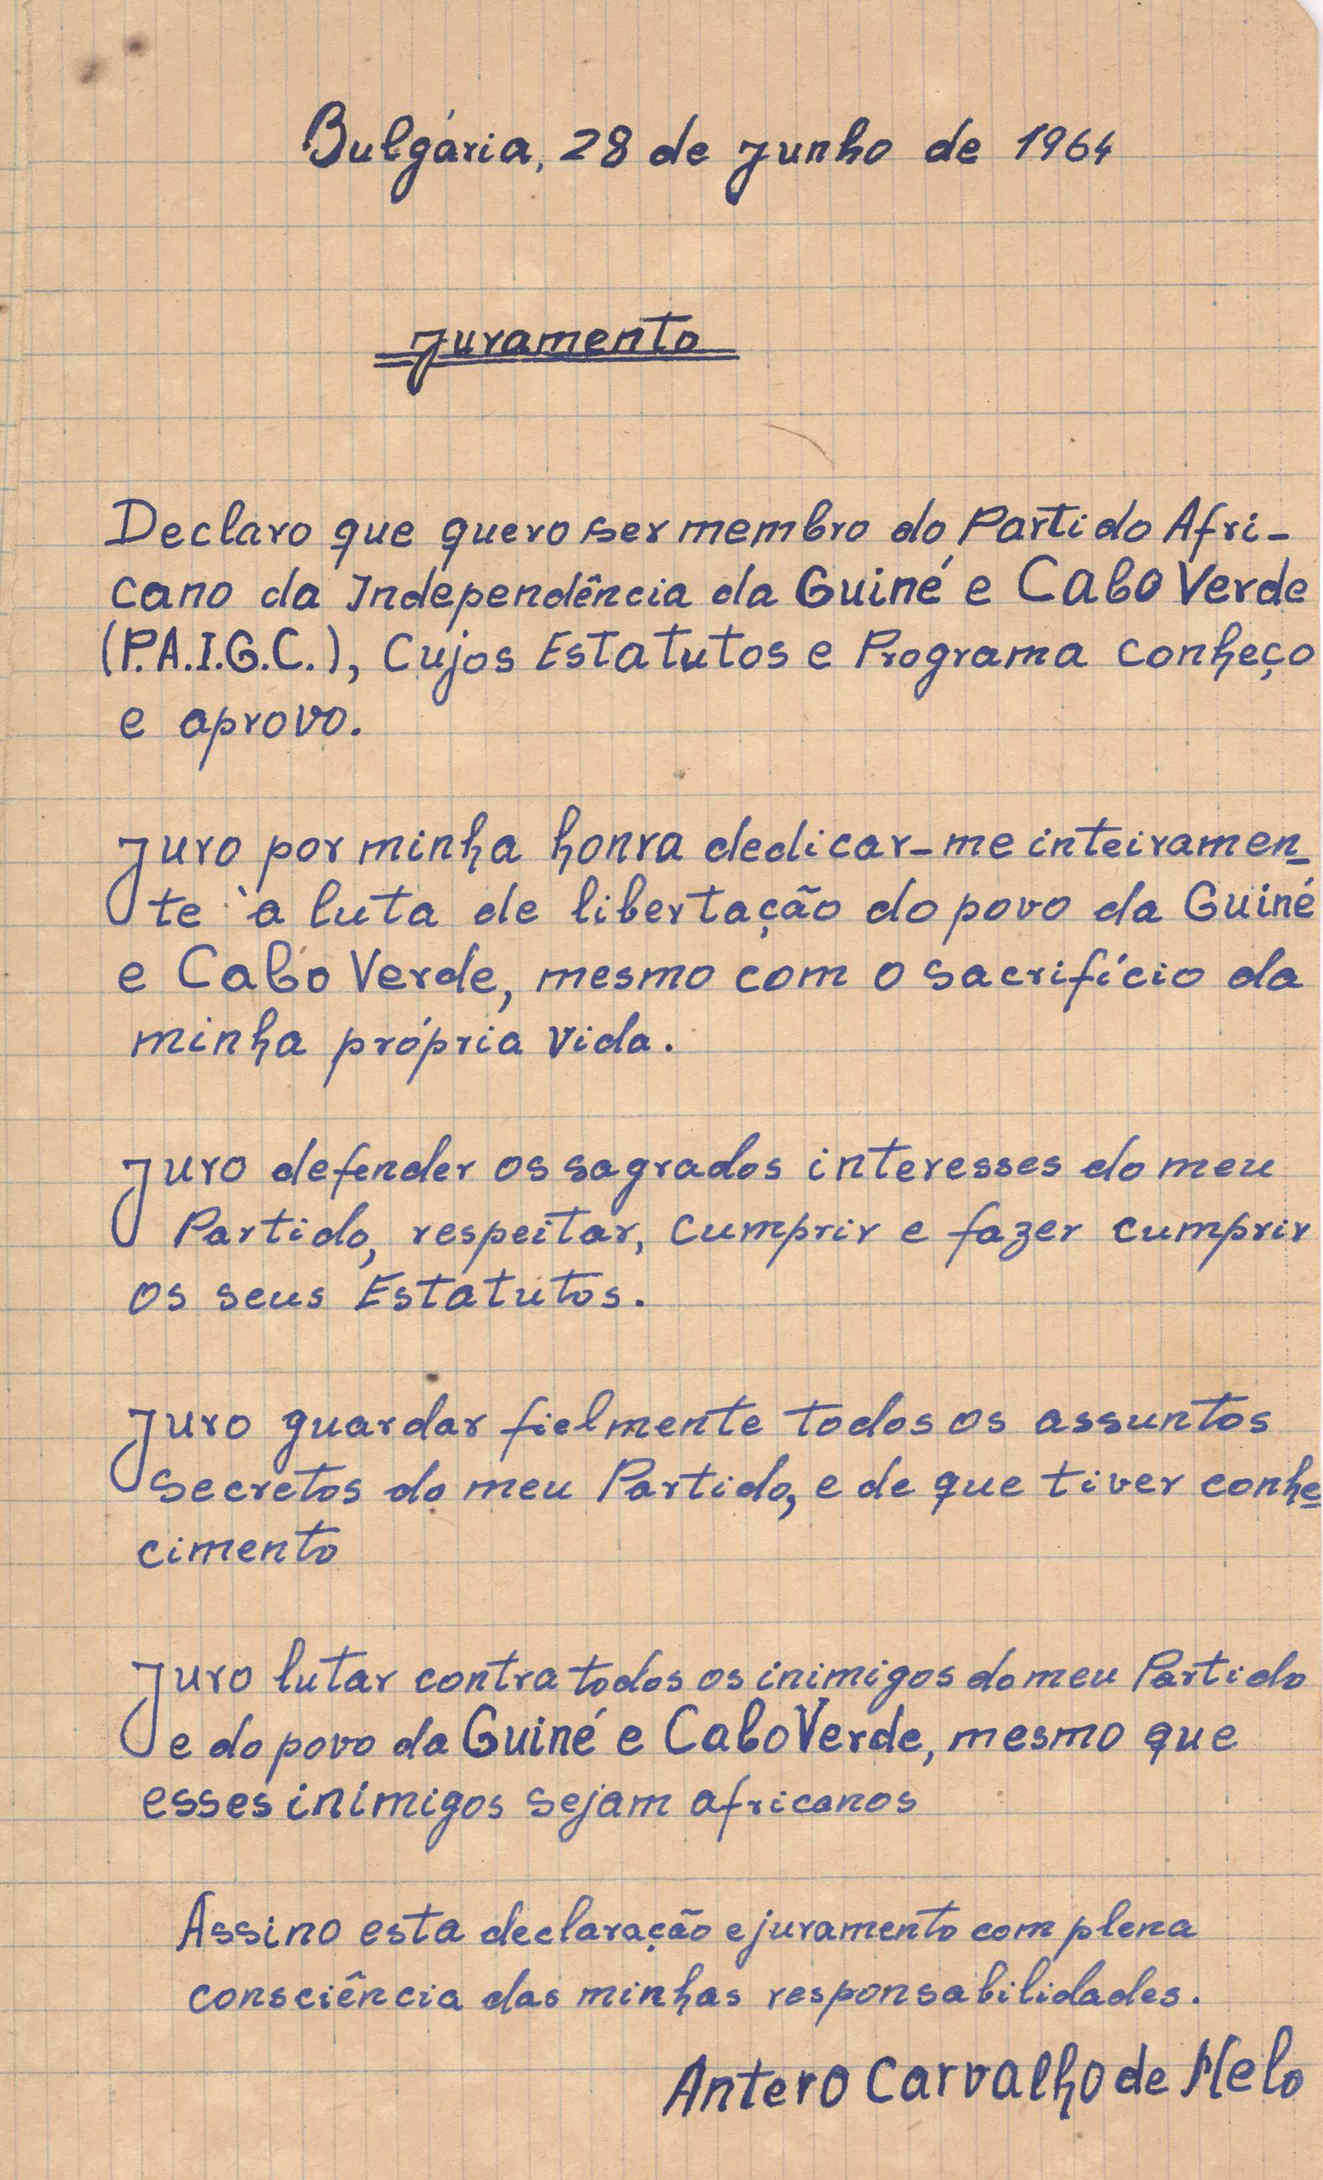 Bulgária, 28 de Junho de 1964
Juramento
Declaro que quero ser membro do Partido Afri-
cano da Independência da Guiné e Cabo Verde
(P.A.I.G.C.), Cujos Estatutos e Programa conheço
e aprovo.
Juro por minha honra dedicar-me inteiramen-
te à luta de libertação do povo da Guiné
e Cabo Verde, mesmo com o sacrifício da
minha própria vida.
Juro defender os sagrados interesses do meu
Partido, respeitar, cumprir e fazer cumprir
os seus Estatutos.
Juro guardar fielmente todos os assuntos
secretos do meu Partido, e de que tiver conhe
cimento
Juro lutar contra todos os inimigos do meu Partido
e do povo da Guiné e Cabo Verde, mesmo que
esses inimigos sejam africanos
Assino esta declaração e juramento com plena
consciência das minhas responsabilidades.
Antero Carvalho de Melo